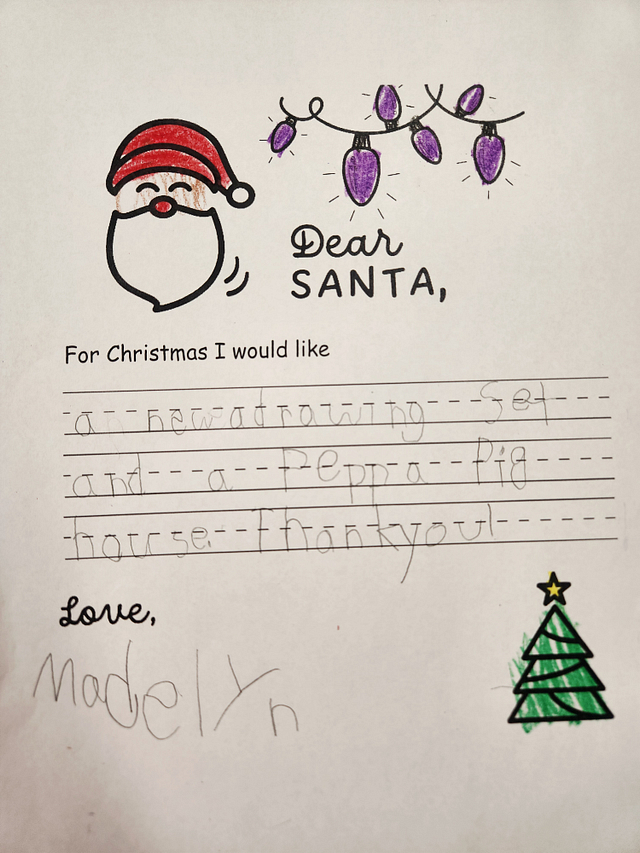 Dear
SANTA,
For Christmas I would like
a new adrawing Set
and a Peppa Pig
house. Thankyou!
Love,
Madelyn